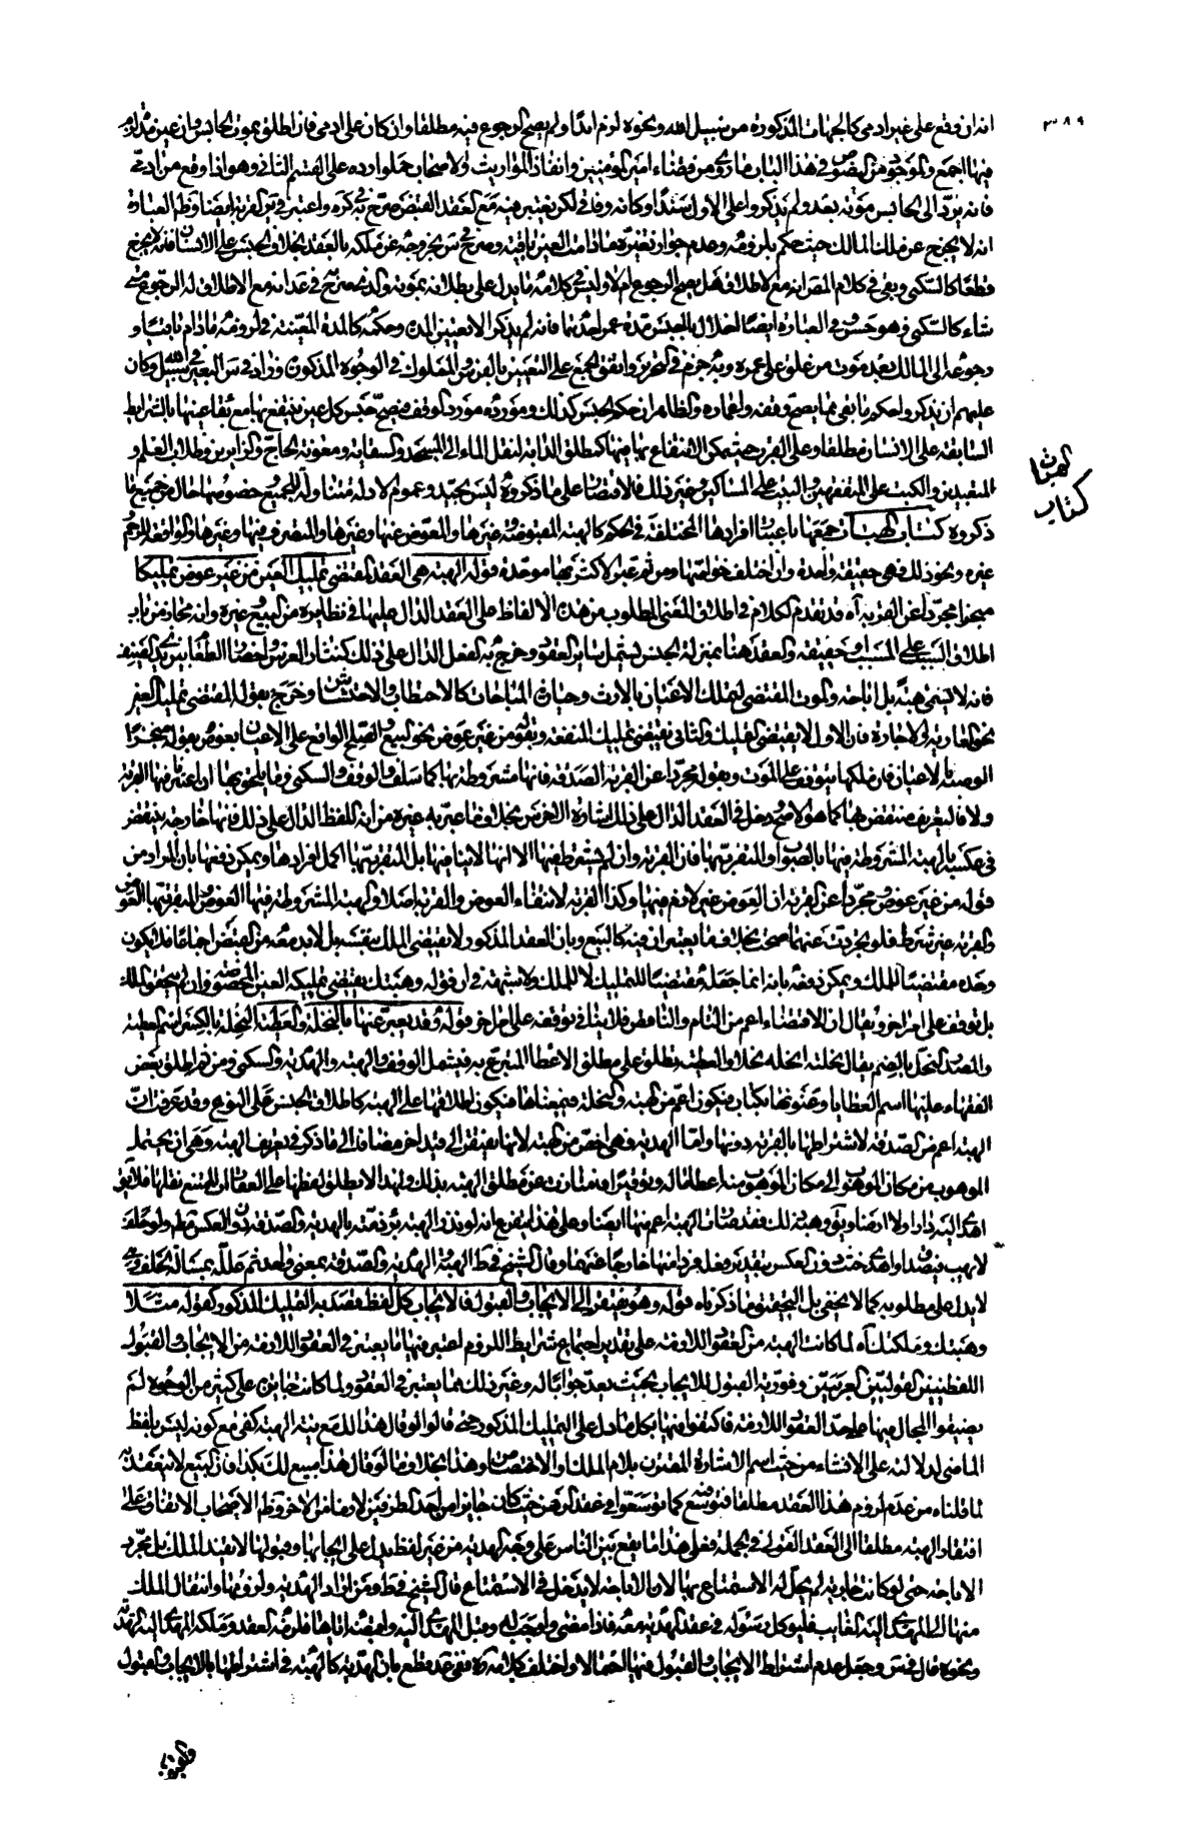 ٣٨٩
انه ان وقع على غير ادمي كالجهات المذكورة من سبيل الله ونحوه لزم ابدا ولم يصح الرجوع فيه مطلقا وان كان على ادمي فان اطلق بموت الحابس وان عين مدة لزم
فيها اجمع والموجود من النصوص في هذا الباب ما روي من قضاء امير المؤمنين وانفاذ المواريث والاصحاب حملوا رده على القسم الثاني وهو اذا وقع من ادمي
فانه يرد الى الحابس موته بعد ولم يذكروا على الاول سندا وكانه وفاقي لكن يعتبر فيه مع العقد القبض صرح به في كره واعتبر في س القربة ايضا وظ العبارة
انه لا يخرج عن ملك المالك حيث حكم بلزومه وعدم جواز تغييره ما دامت العين باقية وصرح في س بخروجه عن ملكه بالعقد بخلاف الحبس على الانسان فانه لا يخرج
قطعا كالسكنى وبقي في كلام المص انه مع الاطلاق هل يصح الرجوع ام لا وليس في كلامه ما يدل على بطلانه بموته والذي صرح في عد انه مع الاطلاق له الرجوع متى
شاء كالسكنى فهو حسن وفي العبارة ايضا اخلال بالحبس مدة عمر احدهما فانه لم يذكر الا تعيين المدة وحكمه كالمدة المعينة في لزومه ما دام باقيا و
رجوعه الى المالك بعد موت من علق على عمره وبه جزم في التحرير واتفق الجمع على التعيين بالفرس والمملوك في الوجوه المذكورة وزاد في س البعير في سبيل الله وكان
عليهم ان يذكروا حكم ما بقي مما يصح وقفه واعماره والظاهر ان حكم الحبس كذلك ومورده مورد الوقف فيصح حبس كل عين ينتفع بها مع بقاء عينها بالشرايط
السابقة على الانسان مطلقا وعلى القرب حيث يمكن الانتفاع بها فيها كمطلق الدابة لنقل الماء الى المسجد والسقاية ومعونة الحاج والزايرين وطلاب العلم و
المتعبدين والكتب على المتفقهين والبيت على المساكين وغير ذلك فالاقتصار على ما ذكروه ليس بجيد وعموم الادلة متناولة للجميع خصوصها خال من جميع ما
ذكروه كتاب الهبات جمعها باعتبار افرادها المختلفة في الحكم كالهبة المقبوضة وغيرها والمعوض عنها وغيرها والمتصرف فيها وغيرها والواقعة للرحم
غيره ونحو ذلك فهي حقيقة واحدة وان اختلف خواصها ومن ثم عبر الاكثر بها موحدة قوله الهبة هي العقد المقتضي تمليك العين من غير عوض تمليكا
منجزا مجردا عن القربة آه قد تقدم الكلام في اطلاق المعنى المطلوب من هذه الالفاظ على العقد الدال عليها في نظايره من البيع وغيره وانه مجاز من باب
اطلاق السبب على المسبب او حقيقة والعقد هنا بمنزلة الجنس يشمل ساير العقود وخرج به الفعل الدال على ذلك كنثار العرس واحضار الطعام بين يدي الضيف
فانه لا يسمى هبة بل اباحة والموت المقتضي لتملك الاعيان بالارث وحيازة المباحات كالاحتطاب والاحتشاش وخرج بقوله المقتضي تمليك العين
نحو العارية والاجارة فان الاول لا يقتضي التمليك والثاني يقتضي تمليك المنفعة وبقوله من غير عوض نحو البيع والصلح الواقع على الاعيان بعوض بقوله منجزا
الوصية بالاعيان فان ملكها يتوقف على الموت وبقوله مجردا عن القربة الصدقة فانها مشروطة بها كما سلف والوقف والسكنى وما يلحق بها ان اعتبرنا فيها القربة
ولا فالتعريف منتقض بها كما هو الاصح ودخل في العقد الدال على ذلك اشارة الاخرس بخلاف ما عبر به غيره من انه اللفظ الدال على ذلك فانها خارجة ينتقض
في عكسه بالهبة المشروطة فيها بالعوض او المتقرب بها فان القربة وان لم يشترط فيها الا انها لا ينافيها بل المتقرب بها اكمل افرادها ويمكن دفعها بان المراد من
قوله من غير عوض ومجردا عن القربة ان العوض غير لازم فيها وكذا القربة لا انتفاء العوض والقربة اصلا والهبة المشروطة فيها العوض والمتقرب بها العوض
والقربة غير شرط فلو تجردت عنهما صحت بخلاف ما يعتبران فيه كالبيع وبان العقد المذكور لا يقتضي الملك بنفسه بل لابد معه من القبض اجماعا فلا يكون
وحده مقتضيا للملك ويمكن دفعه بانه انما جعله مقتضيا للتمليك لا للملك ولا شبهة في ان قوله وهبتك يقتضي تمليكه العين المخصوصة وان لم يتحقق الملك
بل توقف على امر اخر ويقال ان الاقتضاء اعم من التام والناقص فلا ينافي توقفه على امر اخر قوله وقد يعبر عنها بالنحلة والعطية النحلة بالكسر اسم للعطية
والمصدر النحل بالضم يقال نحلته انحله نحلا والعطية تطلق على مطلق الاعطاء المتبرع به فيشمل الوقف والهبة والهدية والسكنى ومن ثم اطلق بعض
الفقهاء عليها اسم العطايا وعنونها بكتاب فيكون اعم من الهبة والنحلة في معناها فيكون اطلاقها على الهبة كاطلاق الجنس على النوع وقد عرف ان
الهبة اعم من الصدقة لاشتراطها بالقربة دونها واما الهدية فهي اخص من الهبة لانها يفتقر الى قيد اخر مضافا الى ما ذكر في تعريف الهبة وهي ان يحتمل
الموهوب من مكان الموهوب الى مكان الموهوب منه اعظاما له وتوقيرا امتازت عن مطلق الهبة بذلك ولهذا لا يطلق لفظها على العقارات الممتنع نقلها فلا يق
اهدى اليه دارا ولا ارضا ويق وهبة ذلك فقد صارت الهبة اعم منها ايضا وعلى هذا يتفرع انه لو نذر الهبة برئ ذمته بالهدية والصدقة دون العكس ولو حلف
لا يهب فتصدق او اهدى حنث دون العكس بتقدير فعل فرد منها خارجا عنهما وقال الشيخ في ط الهبة والهدية والصدقة بمعنى واحد ثم علله بمسألة الحلف وهي
لا يدل على مطلوبه كما لا يخفى بل التحقيق ما ذكرناه قوله وهو يفتقر الى الايجاب والقبول فالايجاب كل لفظ قصد به التمليك المذكور كقوله مثلا
وهبتك وملكتك آه لما كانت الهبة من العقود اللازمة على تقدير اجتماع شرايط اللزوم اعتبر فيها ما يعتبر في العقود اللازمة من الايجاب والقبول
اللفظيين القوليين العربيين وفورية القبول للايجاب بحيث يعد جوابا له وغير ذلك مما يعتبر في العقود ولما كانت جايزة على كثير من الوجوه لم
يضيقوا المجال فيها على حد العقود اللازمة فاكتفوا فيها بكل ما دل على التمليك المذكور حتى قالوا لو قال هذا لك مع نية الهبة كفى مع كونه ليس بلفظ
الماضي لدلالته على الانشاء من حيث اسم الاشارة المقترن بلام الملك والاختصاص وهذا بخلاف ما لو قال هذا مبيع لك بكذا فان البيع لا ينعقد به
لما قلناه من عدم لزوم هذا العقد مطلقا فتوسع فيه كما توسعوا في عقد الرهن حيث كان جايزا من احد الطرفين لازما من الاخر وظ الاصحاب الاتفاق على
افتقار الهبة مطلقا الى العقد القولي في الجملة فعلى هذا ما يقع بين الناس على وجه الهدية من غير لفظ يدل على ايجابها وقبولها لا يفيد الملك بل مجرد
الاباحة حتى لو كانت جارية لم يحل له الاستمتاع بها لان الاباحة لا يدخل في الاستمتاع قال الشيخ في ط ومن اراد الهدية ولزومها وانتقال الملك
منها الى المهدى اليه الغايب فليوكل رسوله في عقد الهدية معه فاذا مضى واوجب له وقبل المهدى اليه واقبضه اياها فلزم العقد وملكه المهدى اليه الهدية
ونحوه قال في س وجعل عدم اشتراط الايجاب والقبول فيها احتمالا واختلف كلامه في عد فقطع بان الهدية كالهبة في اشتراطها بالايجاب والقبول
كتاب
الهبات